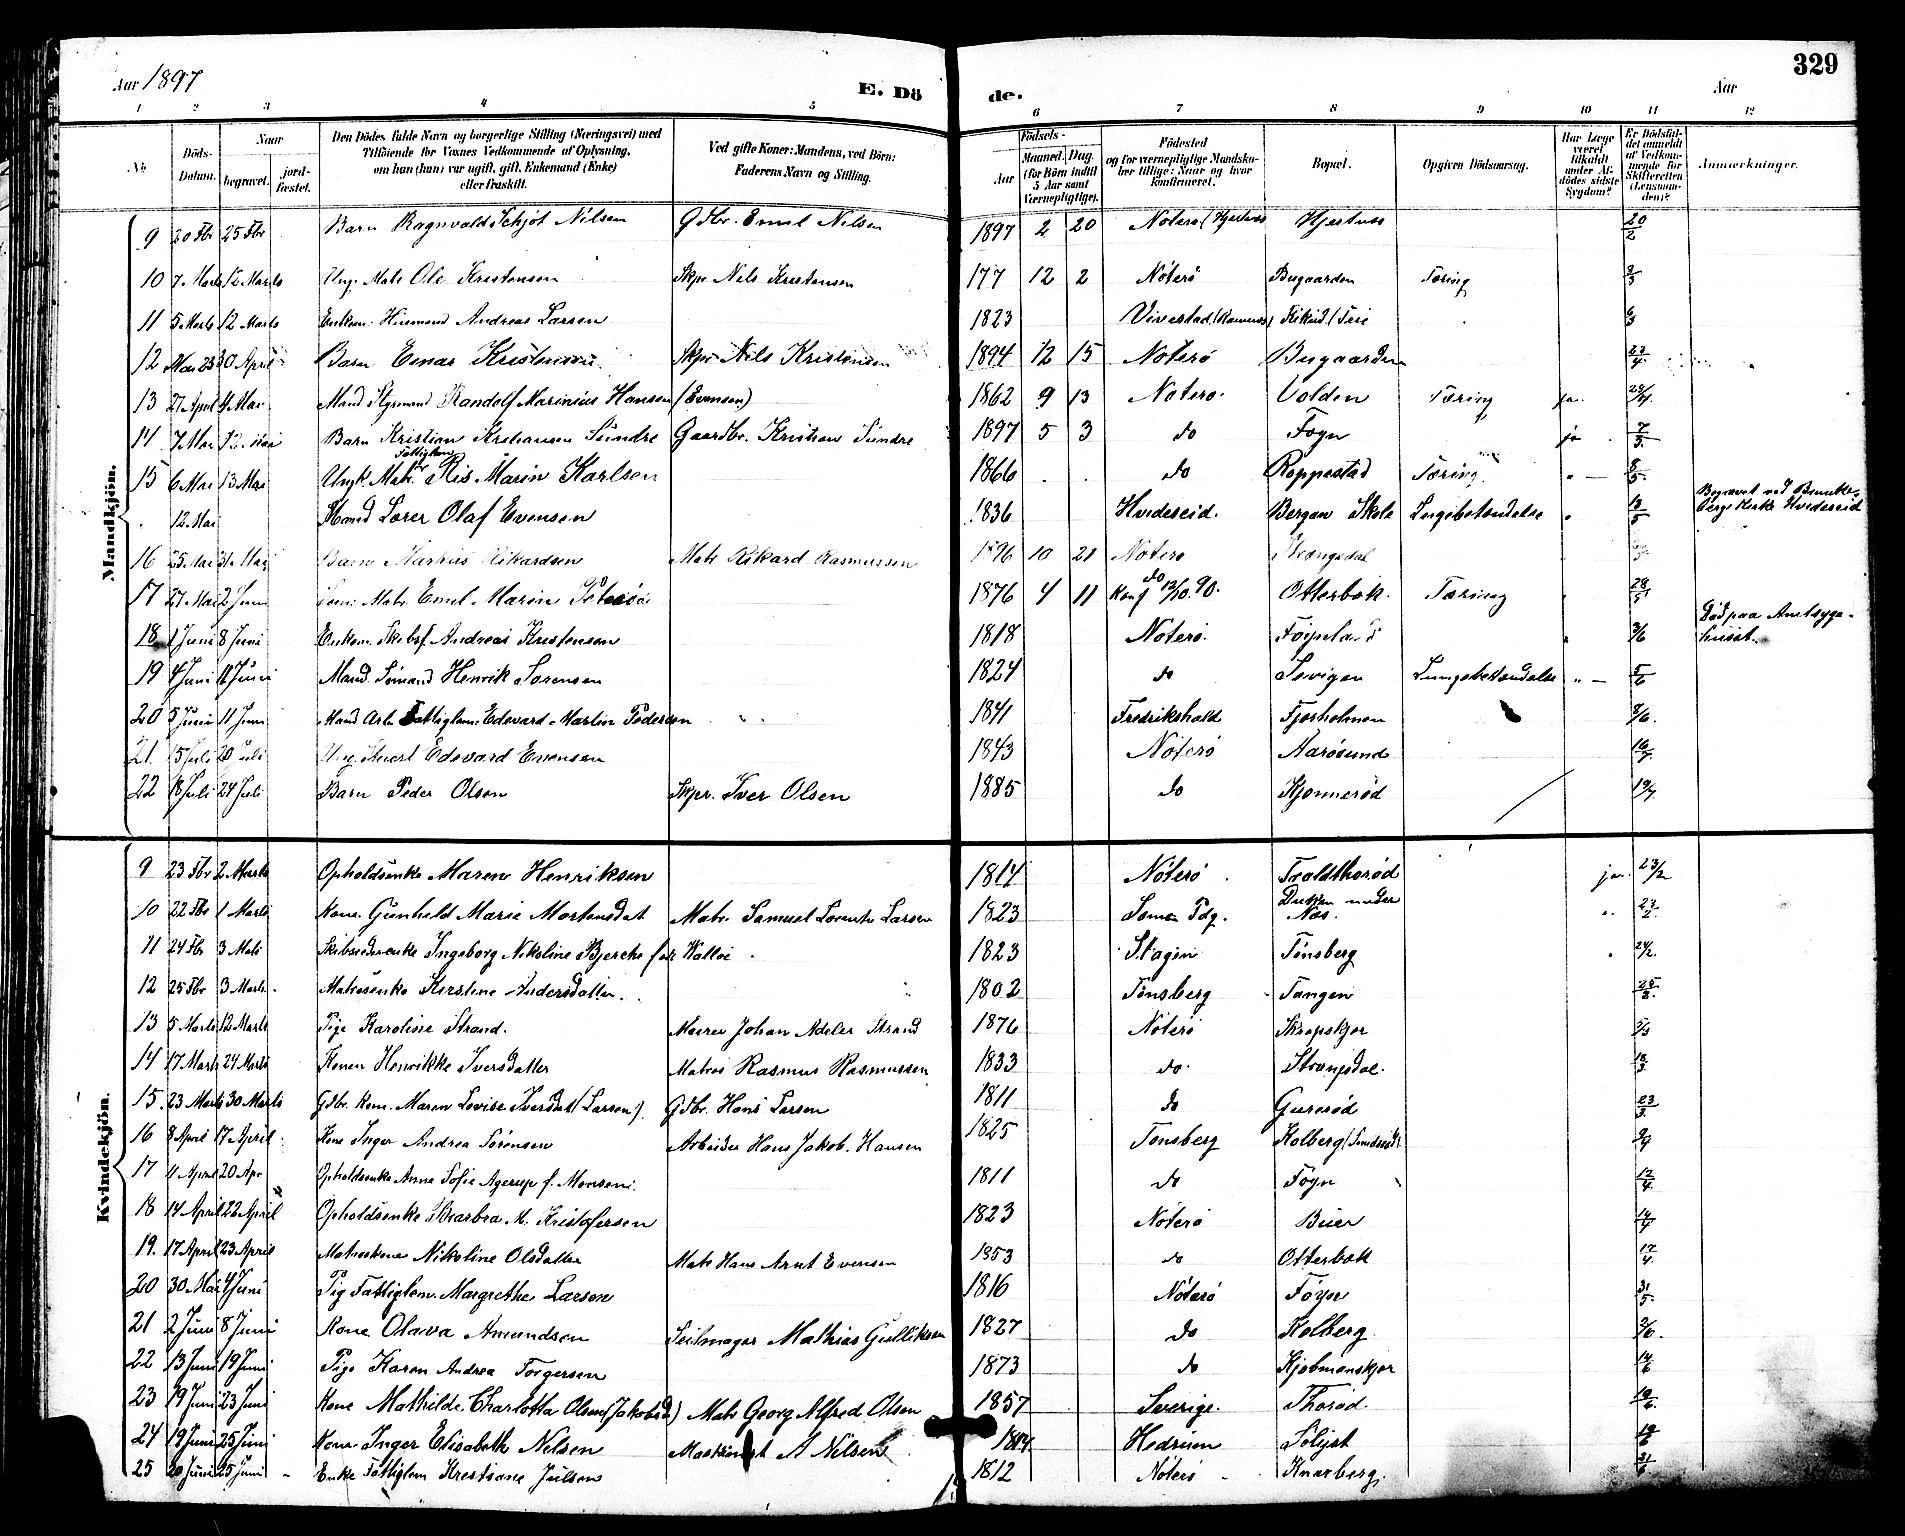 Aar 1897
E. Dö
de.
Aar
329
1 2 3 4 5 6 7 8 9 10 11 12
No
Döds-Datum.
Naar
begravet.
jord-fæstet.
Den Dödes fulde Navn og borgerlige Stilling (Næringsvei) med Tilföiende for Voxnes Vedkommende af Oplysning, om han (hun) var ugift, gift, Enkemand (Enke) eller fraskilt.
Ved gifte Koner: Mandens, ved Börn: Faderens Navn og Stilling.
Födsels-
Aar
Maaned. Dag.
(for Börn indtil 5 Aar samt Værnepligtige).
Födested og for værnepligtige Mandskaber tillige: Naar og hvor konfirmeret.
Bopæl.
Opgiven Dödsaarsag.
Har Læge været tilkaldt under Afdödes sidste Sygdom?
Er Dödsfaldet anmeldt af Vedkommende for Skifteretten (Lensmanden)?
Anmærkninger.
Mandkjön.
9 20 Fbr 25 Fbr Barn Ragnvald Nilsen Gdbr. Emil Nilsen 1897 2 20 Nøterø 20/2
10 7. Marts 12 Marts Ung. Matr Ole Kristensen Skpr Nils Kristensen 177 12 2 Nøterø Bugaarden Tæring
11 5 Marts 12 Marts Enkem. Husmand Andreas Larsen 1823
12 30 April Barn Einar Kristensen Skpr Nils Kristensen 1894 12 15 Nøterø Bugaarden 23/4
13 27 April 4 Mai Mand Styrmand Randolf Marinius Hansen (Evensen) 1862 9 13 Nøterø Volden Tæring ja. 28/4
14 7 Mai 12 Mai Barn Kristian Kristiansen Sundre Gaardbr. Kristian Sundre 1897 5 3 do Føyn ja 7/5
15 6 Mai 13 Mai Ungk. Matr. Fattiglem Ris. Marin Karlsen 1866 do Roppestad Tæring " — 8/5
12. Mai Mand Lærer Olaf Evensen 1836 Hvideseid. Bergan Skole Lugebetændelse " 13/5 Begravet ved Brunkebergs Kirke Hvideseid
16 25 Mai 31 Mai Barn Markus Rikardsen Matr Rikard Rasmussen 1896 10 21 Nøterø Strængsdal
17 27 Mai 2 Juni Matr. Emil Marin 1876 4 11 do Konf 12/10. 90. Otterbæk. Tæring 28/5
18 1 Juni 8 Juni Enkem. Skibsf. Andreas Kristensen 1818 Nøterø. Føynland 3/6 Død paa Amtssygehuset.
19 4 Juni 11 Juni Mand. Sømand Henrik Sørensen 1824 do Sevigen Lungebetændelse " — 5/6
20 5 Juni 11 Juni Mand Arb. Fattiglem. Edevard Martin Pedersen 1841 Fredrikshald Fjærholmen 8/6.
21. 15 Juli 20 Juli Ung. Stuert Edevard Evensen 1843 Nøterø Aarøsund 16/7
22 18 Juli 24 Juli Barn Peder Olsen Skpr. Iver Olsen 1885 do Kjønnerød 19/7.
Kvindekjön.
9 23 Fbr 2 Marts Opholdsenke Maren Henriksen 1814 Nøterø Troldthorød ja. 23/2
10 22 Fbr 1 Marts Kone. Gunhild Marie Mortensdat Matr. Samuel Lorents Larsen 1823 Sems Pdg. under Næs. 23/2
11 24 Fbr 3 Mats Skibsrederenke Ingeborg Nikoline Bjerche født Walløe 1823 Slagen Tønsberg 24/2.
12 25 Fbr 3 Marts Matrosenke Kirstine Andersdatter. 1802 Tønsberg Tangen 25/2.
13 5 Marts 12 Marts Pige Karoline Strand. Murer Johan Adeler Strand 1876 Nøterø 5/3
14 17 Marts 24 Marts Konen Henrikke Iversdatter Matros Rasmus Rasmussen 1833 do. Strængsdal. 18/3
15. 23 Marts 30 Marts Gdbr. Kone. Maren Lovise Iversdat (Larsen). Gdbr. Hans Larsen 1811 do Gunerød 23/3.
16 8 April 17 April Kone Inger Andrea Sørensen Arbeider Hans Jakob. Hansen 1825 Tønsberg Kolberg 9/4
17 11 April 20 Apr Opholdsenke Anna Sofie Agerup f. Monsen. 1811 do Føyn 12/4.
18 14 April 22 April Opholdsenke Barbra M. Kristofersen 1823 Nøterø Buer 14/4
19. 17 April 23 April Matroskone Nikoline Olsdatter Matr Hans Arnt Evensen 1853 do Otterbæk 17/4.
20 30 Mai 4 Juni Pig Fattiglem. Margrethe Larsen 1816 Nøterø Føyn 31/5.
21 2 Juni 8 Juni Kone Olava Amundsen Seilmager Mathias Gulliksen 1827 do Kolberg. 2/6.
22 13 Juni 19 Juni Pige Karen Andrea Torgersen 1873 do Kjøbmanskjær 14/6
23 19 Juni 23 Juni Kone Mathilde Charlotta Olsen (Jakobsd) Matr Georg Alfred Olsen 1857 Sverige. Thorød. 19/6.
24 19 Juni 25 Juni Kone Inger Elisabeth Nilsen A Nilsen 1814 Hedrum 19/6
25 20 Juni 25 Juni Enke Fattiglem Kristiane Julsen 1812 Nøterø Knarberg. 21/6